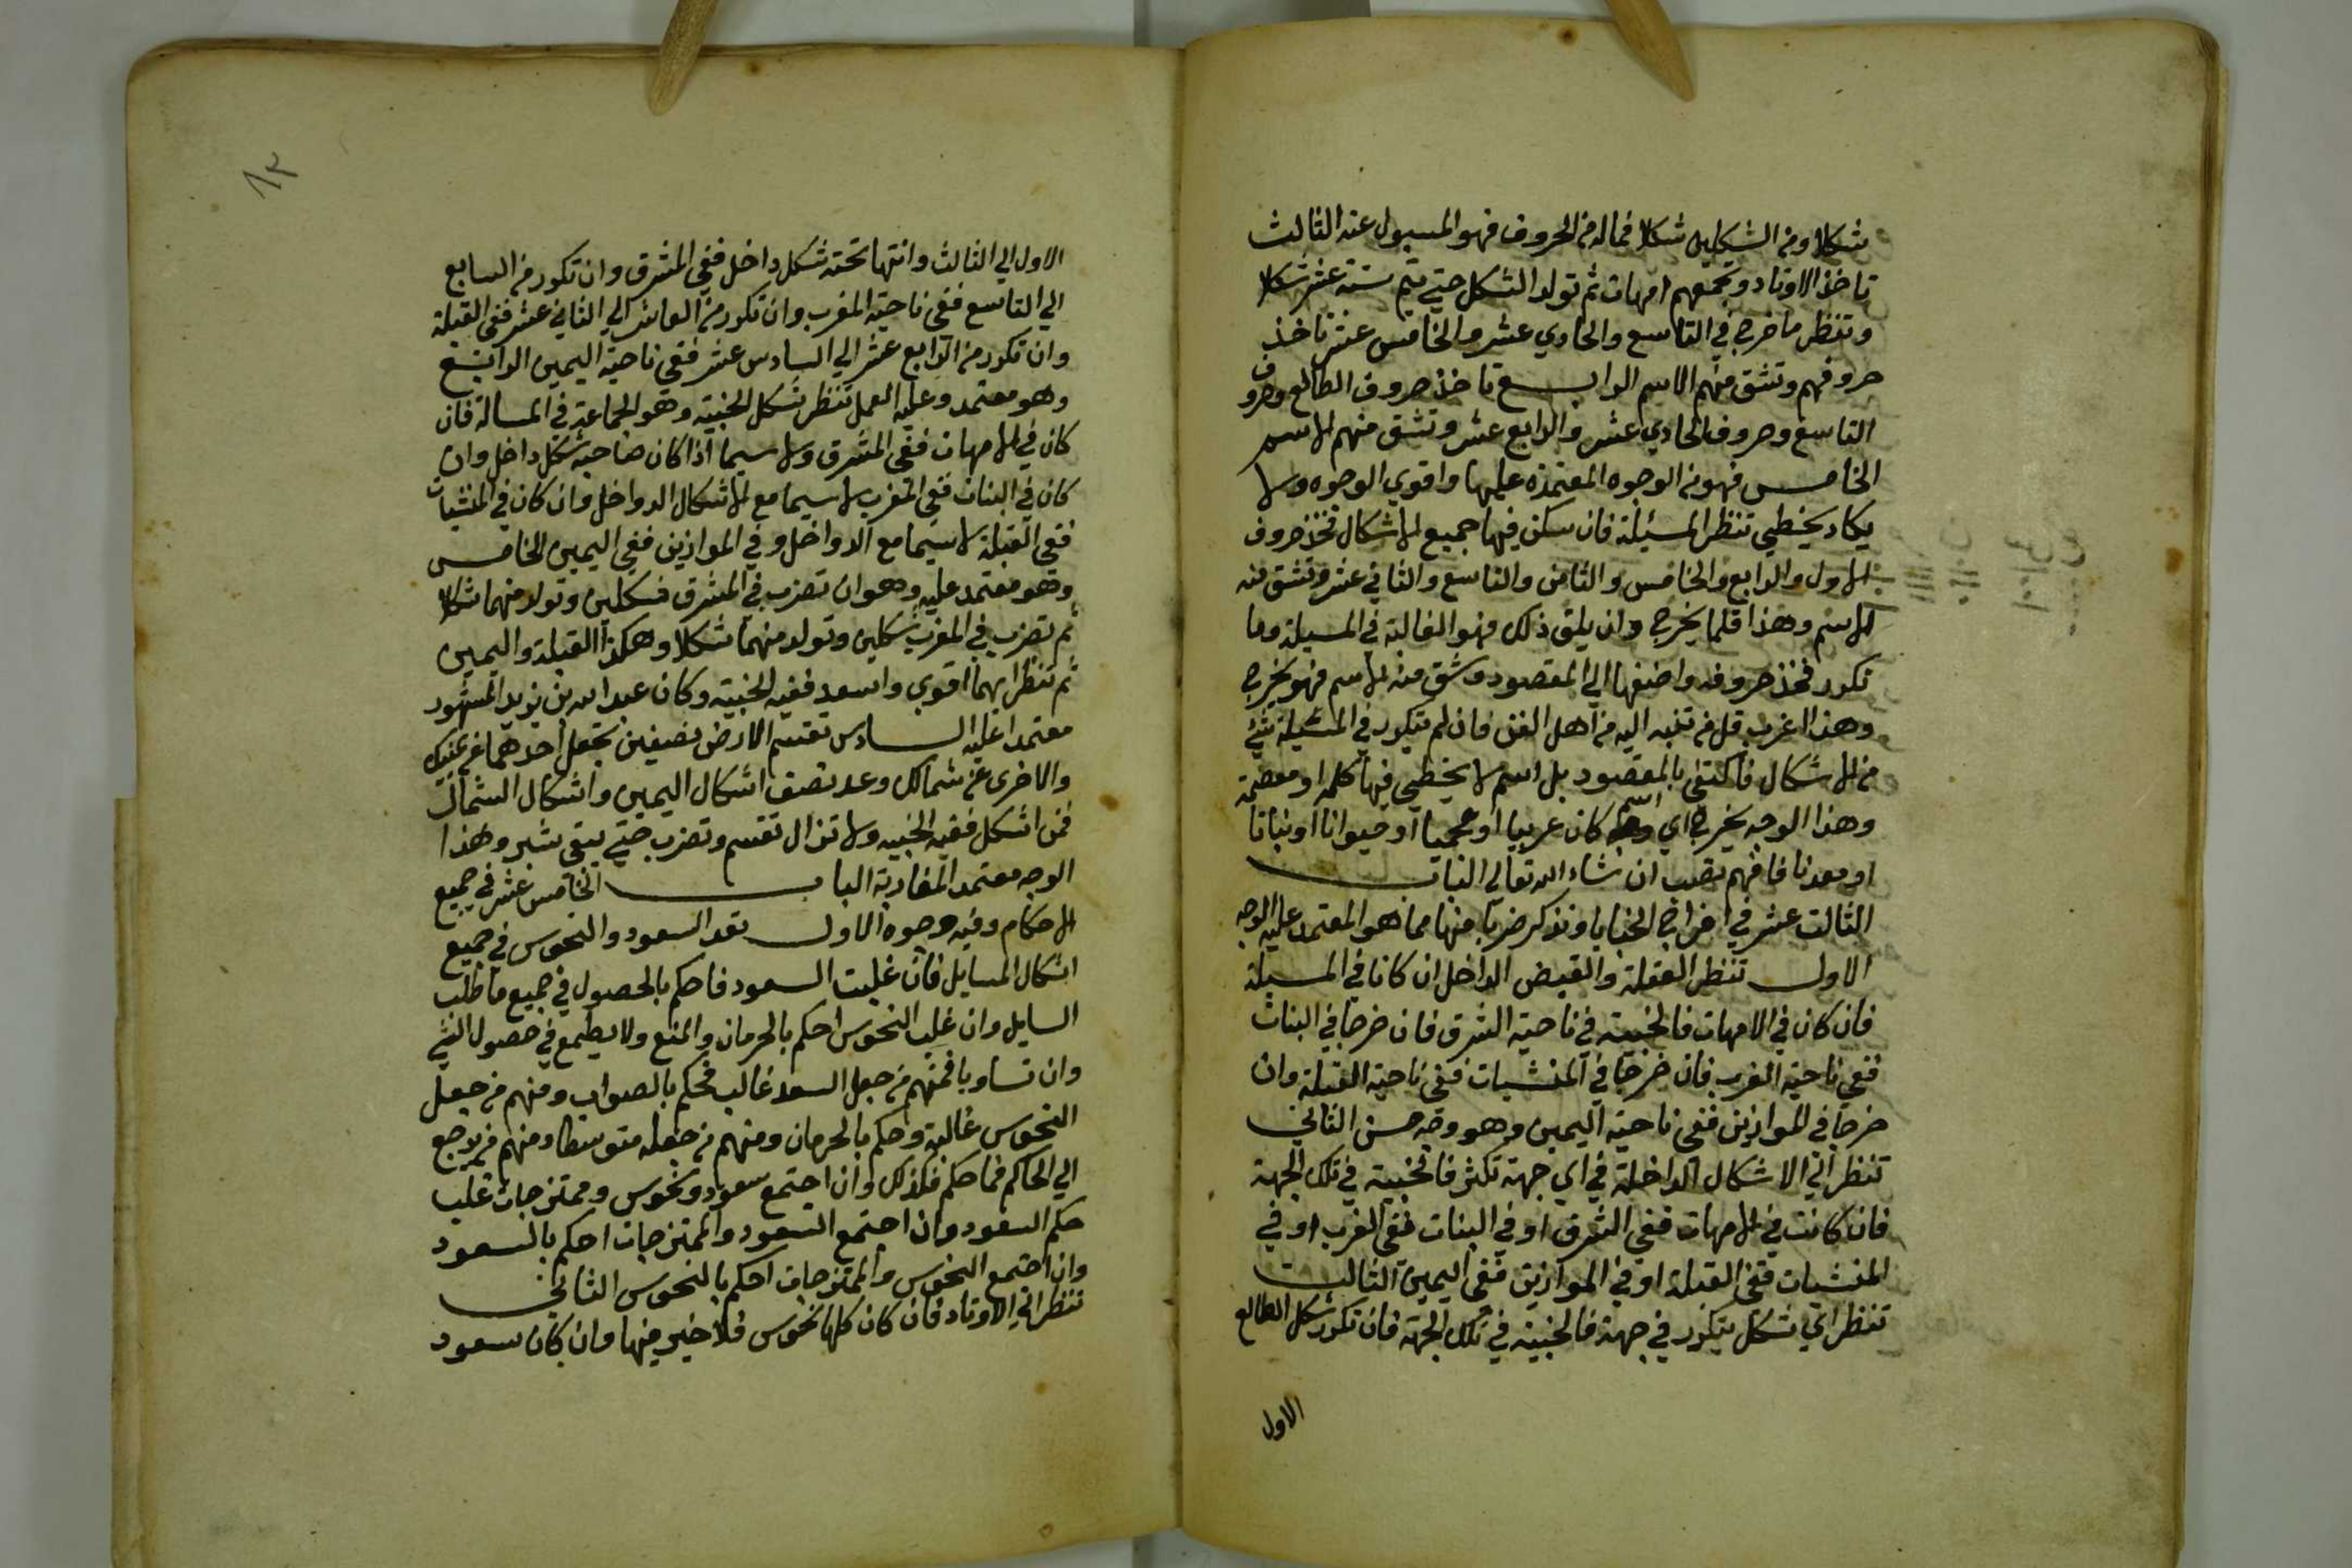 شكلا ومن الشكلين شكلا فماله من الحروف فهو المسيول عنه الثالث
تاخذ الاوتاد وتجمعهم امهات ثم تولد الشكل حتي يتم ستة عشر شكلا
وتنظر ما خرج في التاسع والحادي عشر والخامس عشر تاخذ
حروفهم وتشق منهم الاسم الرابع تاخذ حروف الطالع وحروف
التاسع وحروف الحادي عشر والرابع عشر وتشق منهم الاسم
الخامس فهو من الوجوه المعتمدة عليها واقوي الوجوه ولا
يكاد يخطي تنظر المسيلة فان سكن فيها جميع الاشكال فخذ حروف
الاول والرابع والخامس والثامن والتاسع والثاني عشر وتشق منه
الاسم وهذا قلما يخرج وان يلق ذلك فهو الغالبة في المسيلة وما
تكرر فخذ حروفه واضفها الي المقصود وشق منه الاسم فهو يخرج
وهذا اغرب قل من تنبه اليه من اهل الفن فان لم يتكرر في المسيلة شي
من الاشكال فاكتفي بالمقصود بل اسم لا يخطي فيها كلمه او معضمه
وهذا الوجه يخرج اي اسم كان عربيا او عجميا او حيوانا او نباتا
او معدنا فافهم تصب ان شاء الله تعالي الباب
الثالث عشر في اخراج الخبايا ونذكر ضربا منها مما هو المعتمد عليه الوجه
الاول تنظر العقلة والقبض الداخل ان كانا في المسيلة
فان كان في الامهات فالخبية في ناحية الشرق فان خرجا في البنات
ففي ناحية المغرب فان خرجا في المنشيات ففي ناحية القبلة وان
خرجا في الموازين ففي ناحية اليمين وهو وجه حسن الثاني
تنظر الي الاشكال الداخلة في اي جهة تكثر فالخبية في تلك الجهة
فان كانت في الامهات ففي الشرق او في البنات ففي الغرب او في
المنشيات ففي القبلة او في الموازين ففي اليمين الثالث
تنظر اي شكل يتكرر في جهة فالخبية في تلك الجهة فان تكرر شكل الطالع
الاول
١٢
الاول الي الثالث وانتها تحته شكل داخل ففي المشرق وان تكرر من السابع
الي التاسع ففي ناحية المغرب وان تكرر من العاشر الي الثاني عشر ففي القبلة
وان تكرر من الرابع عشر الي السادس عشر ففي ناحية اليمين الرابع
وهو معتمد وعليه العمل تنظر شكل الخبية وهو الجماعة في المسالة فان
كان في الامهات ففي المشرق ولا سيما اذا كان صاحبه شكل داخل وان
كان في البنات ففي المغرب لا سيما مع الاشكال الدواخل وان كان في المنشيات
ففي القبلة لا سيما مع الدواخل وفي الموازين ففي اليمين الخامس
وهو معتمد عليه وهو ان تضرب في المشرق شكلين وتولد منهما شكلا
ثم تضرب في المغرب شكلين وتولد منهما شكلا وهكذا القبلة واليمين
ثم تنظر ايهما اقوي واسعد ففيه الخبية وكان عبد الله بن يزيد المشهود
معتمدا عليه السادس تقسم الارض نصفين تجعل احدهما عن يمينك
والاخرى عن شمالك وعد نصف اشكال اليمين واشكال الشمال
فمن اشكل ففيه الخبيه ولا تزال تقسم وتضرب حتي يبقى شبر وهذا
الوجه معتمد المغاربة الباب الخامس عشر في جميع
الاحكام وفيه وجوه الاول تعد السعود والنحوس في جميع
اشكال المسايل فان غلبت السعود فاحكم بالحصول في جميع ما طلب
السايل وان غلب النحوس احكم بالحرمان والمنع ولا يطمع في حصول الشي
وان تساويا فمنهم من جعل السعد غالب فحكم بالصواب ومنهم من جعل
النحوس غالبة وحكم بالحرمان ومنهم من جعله متوسطا ومنهم من يرجع
الي الحاكم فما حكم فكذلك وان اجتمع سعود ونحوس وممتزجات غلب
حكم السعود وان اجتمع السعود والممتزجات احكم بالسعود
وان اجتمع النحوس والممتزجات احكم بالنحوس الثاني
تنظر الي الاوتاد فان كان كلها نحوس فلا خير فيها وان كان سعود